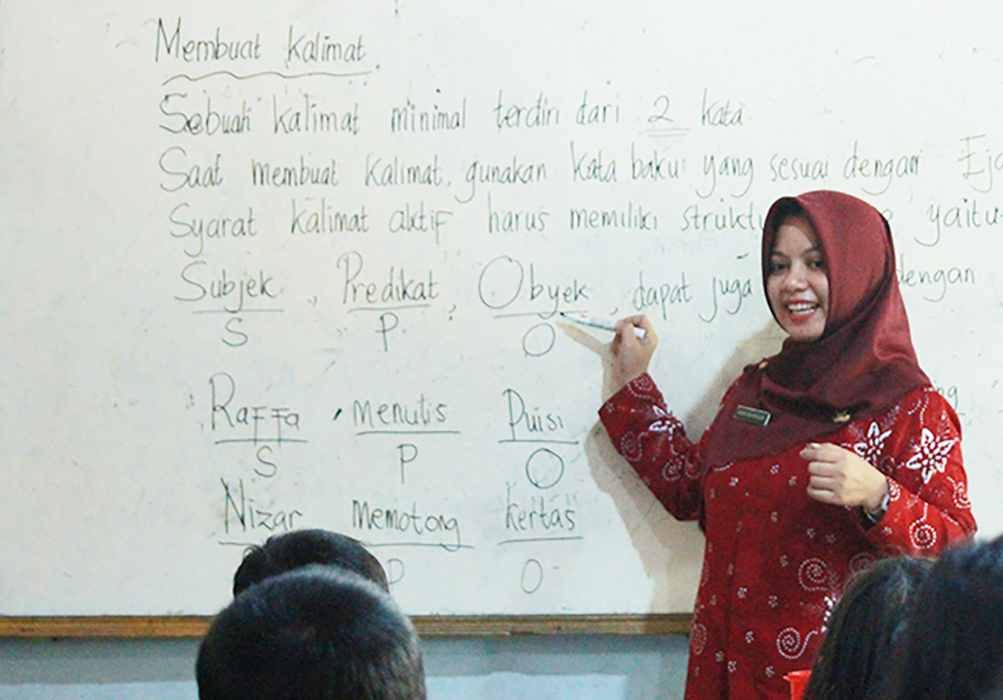 Membuat kalimat
Sebuah kalimat minimal terdiri dari 2 kata
Saat membuat kalimat, gunakan kata baku yang sesuai dengan
Syarat kalimat aktif harus memiliki yaitu
Subjek, Predikat, Obyek, dapat juga dengan
S P O
Raffa menulis Puisi
S P O
Nizar memotong kertas
P O